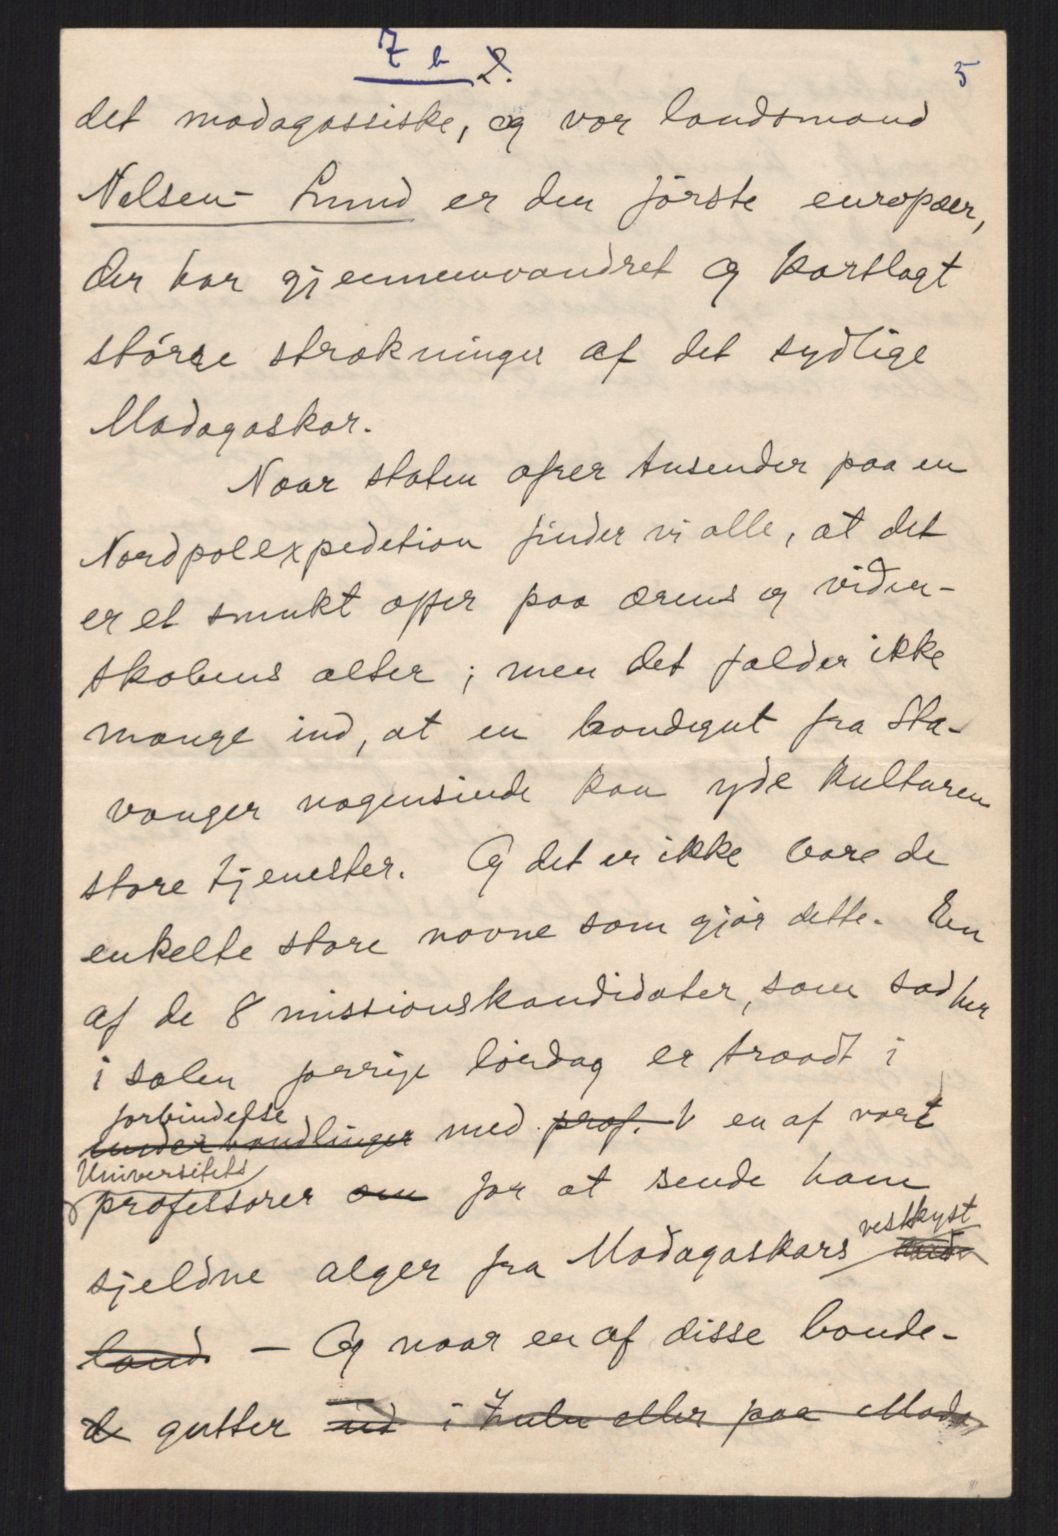 7 b 2. 5
det madagassiske, og vor landsmand
Nelsen-Lund er den förste europæer,
der har gjennemvandret og kartlagt
större strækninger af det sydlige
Madagaskar.
Naar staten ofrer tusender paa en
Nordpolexpedetion finder vi alle, at det
er et smukt offer paa ærens og viden-
skabens alter; men det falder ikke
mange ind, at en bondegut fra Sta-
vanger nogensinde kan yde kulturen
store tjenester. Og det er ikke bare de
enkelte store navne som gjör dette. En
af de 8 missionskandidater, som sad her
i salen forrige lördag er traadt i
forbindelse
underhandlinger med prof. V en af vore
Universitets
professorer om for at sende ham
vestkyst
sjeldne alger fra Madagaskars
land. — Og naar en af disse bonde-
de gutter ud i Zulu eller paa Mada